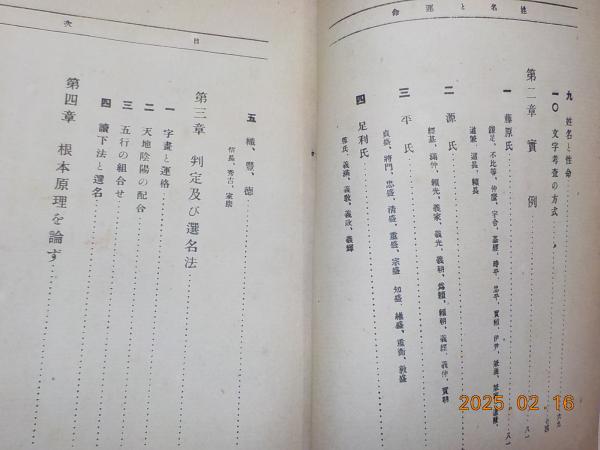 姓名と運命
九 姓名と性命
一〇 文字考査の方式
第二章 實例
一 藤原氏
鎌足、不比等、仲麿、宇合、基經、時平、忠平、實頼、伊尹、兼通、兼家、道隆
道兼、道長、頼長
二 源氏
經基、滿仲、頼光、義家、義光、義朝、爲朝、頼朝、義經、義仲、實朝
三 平氏
貞盛、將門、忠盛、清盛、重盛、宗盛、知盛、維盛、重衡、敦盛
四 足利氏
尊氏、義滿、義教、義政、義輝
目次
五 織、豐、德
信長、秀吉、家康
第三章 判定及び選名法
一 字畫と連絡
二 天地陰陽の配合
三 五行の組合せ
四 讀下法と選名
第四章 根本原理を論ず
2025.02.16